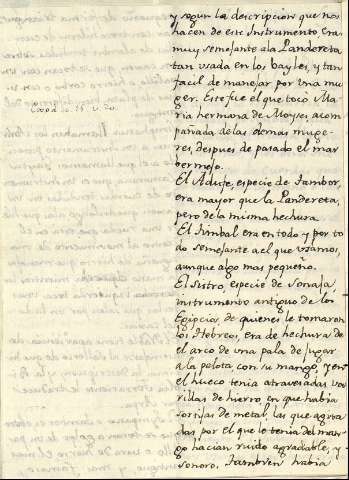 y segun la descripcion que nos
hacen de este Instrumento era
muy semejante a la Landereta
tan usada en los bayles, y tan
facil de manejar por una mu
ger. Este fue el que tocó Ma
ria hermana de Moyses acom
pañada de las demas muge
res, despues de pasado el mar
bermejo.
El Adufe, especie de Tambor,
era mayor que la Landereta,
pero de la misma hechura.
El Timbal era en todo y por to
do semejante a el que usamos,
aunque algo mas pequeño.
El Sistro, especie de Sonaja,
instrumento antiguo de los
Egipcios, de quienes le tomaron
los Hebreos, era de hechura de
el arco de una pala de jugar
a la pelota con su mango, y en
el hueco tenia atravesadas va
rillas de hierro, en que habia
sortijas de metal, las que agita
das por el que le tenia del man
go hacian ruido agradable, y
sonoro. Tambien habia
Exod. 15 v. 20